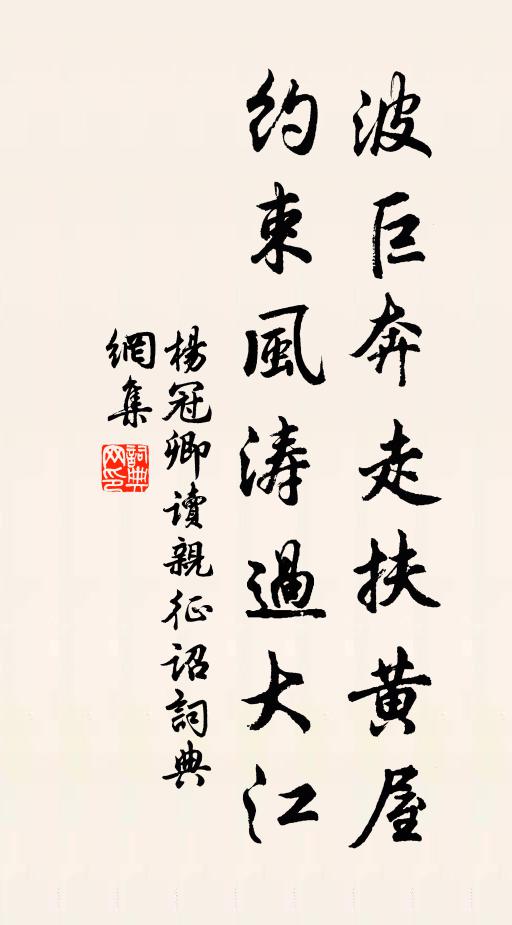 波巨奔走扶黃屋
約束風濤過大江
楊冠卿讀親征詔詞典
網集
詞典網印